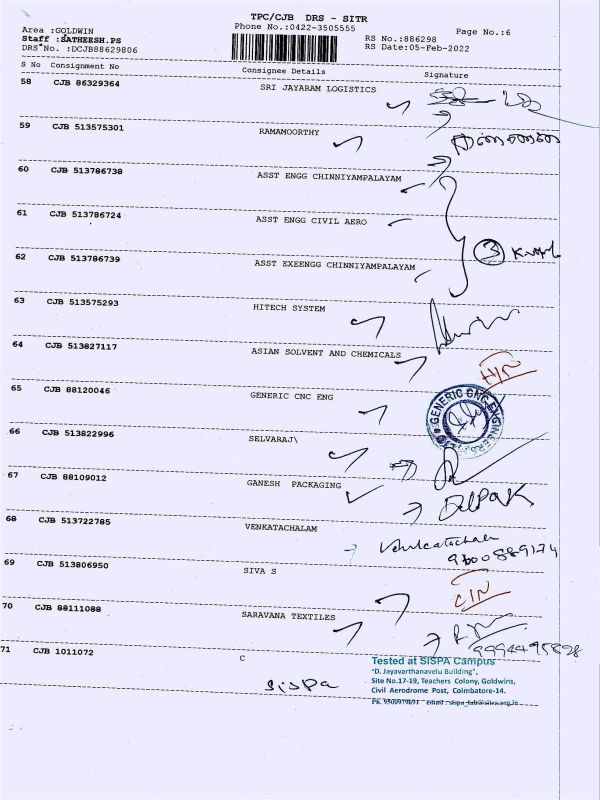 TPC/CJB DRS - SITR
Area :GOLDWIN
Phone No.:0422-3505555
Page No.:6
Staff :SATHEESH.PS
RS No.:886298
DRS No. :DCJB88629806
RS Date:05-Feb-2022
S No Consignment No Consignee Details Signature
58 CJB 86329364 SRI JAYARAM LOGISTICS
59 CJB 513575301 RAMAMOORTHY
60 CJB 513786738 ASST ENGG CHINNIYAMPALAYAM
61 CJB 513786724 ASST ENGG CIVIL AERO
62 CJB 513786739 ASST EXEENGG CHINNIYAMPALAYAM
3
63 CJB 513575293 HITECH SYSTEM
64 CJB 513827117 ASIAN SOLVENT AND CHEMICALS
65 CJB 88120046 GENERIC CNC ENG
GENERIC CNC ENGINEERS
66 CJB 513822996 SELVARAJ\
67 CJB 88109012 GANESH PACKAGING
DEEPAK
68 CJB 513722785 VENKATACHALAM
Venkatachalam
9600889174
69 CJB 513806950 SIVA S
70 CJB 88111088 SARAVANA TEXTILES
71 CJB 1011072 C
SISPA
Tested at SISPA Campus
"D. Jayavarthanavelu Building",
Site No.17-19, Teachers Colony, Goldwins,
Civil Aerodrome Post, Coimbatore-14.